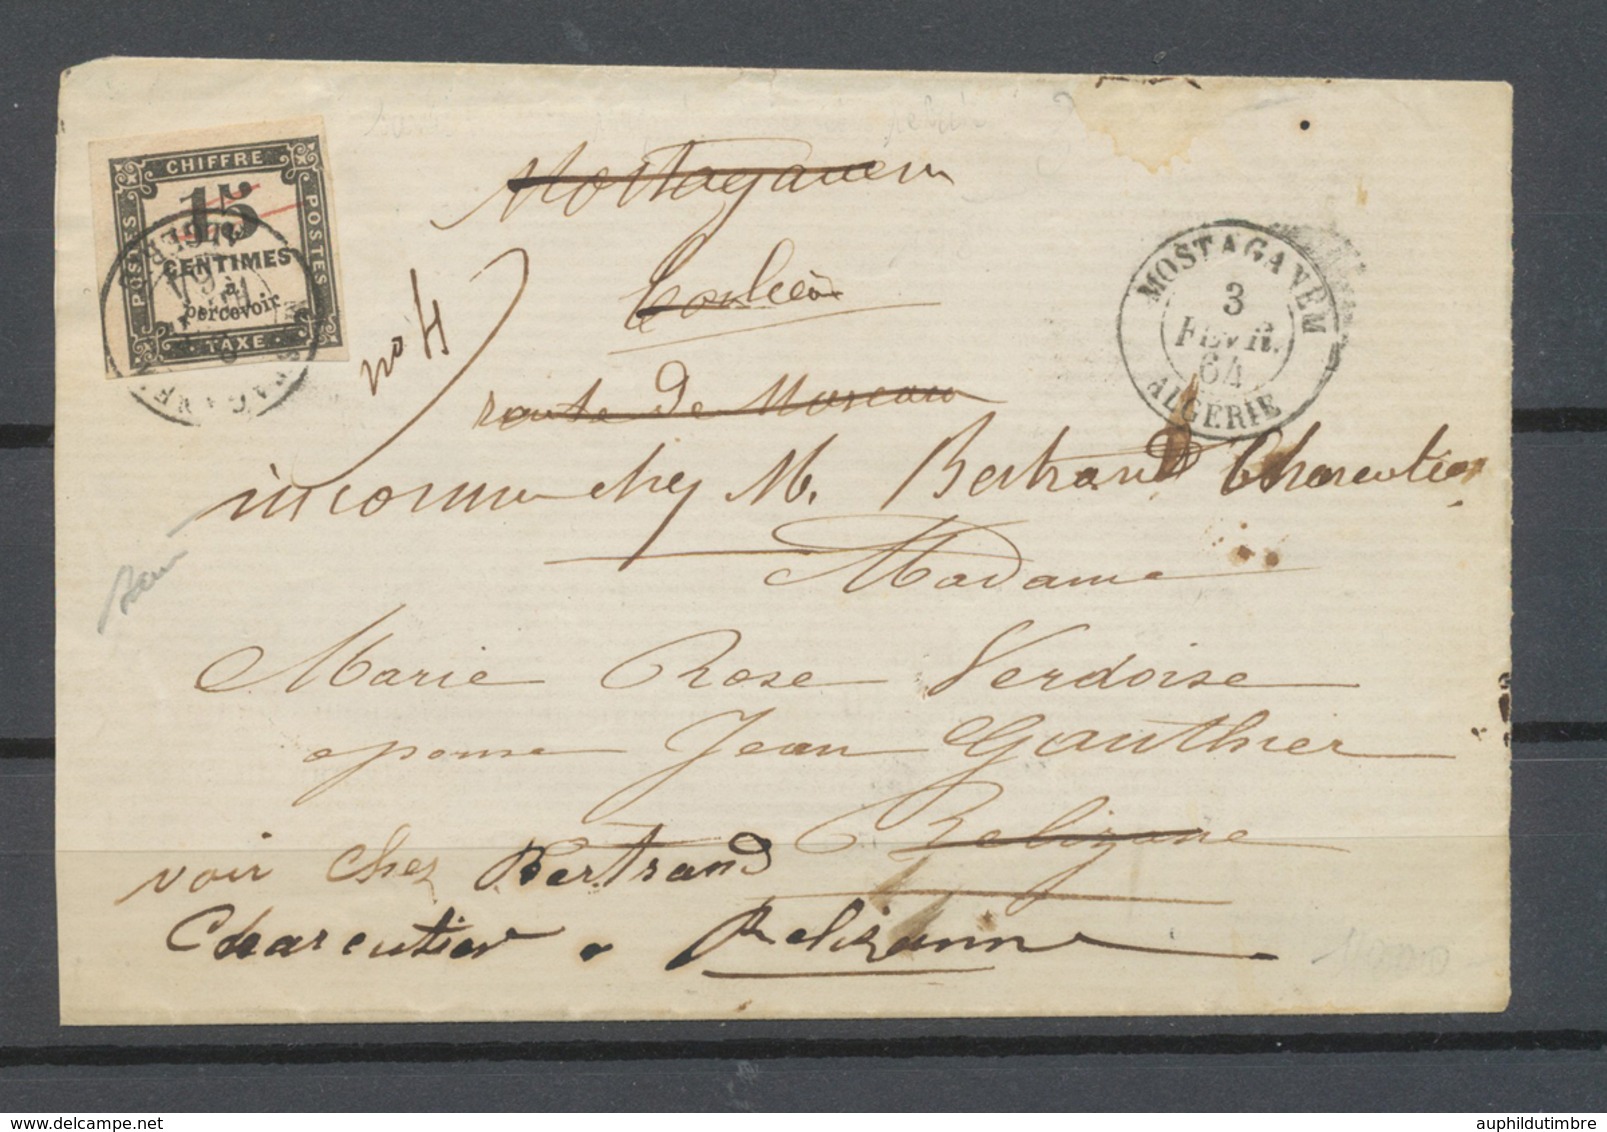 CHIFFRE
15
CENTIMES
à
percevoir
TAXE
POSTES
POSTES
ALGERIE
MOSTAGANEM
3
FEVR.
64
ALGÉRIE
Mostaganem
route de Mascara
no 4
inconnu chez M. Bertrand Charcutier
Madame
Marie Rose Verdoise
epouse Jean Gauthier
Relizane
voir chez Bertrand
Charcutier a Relizanne
auphildutimbre | delcampe.net